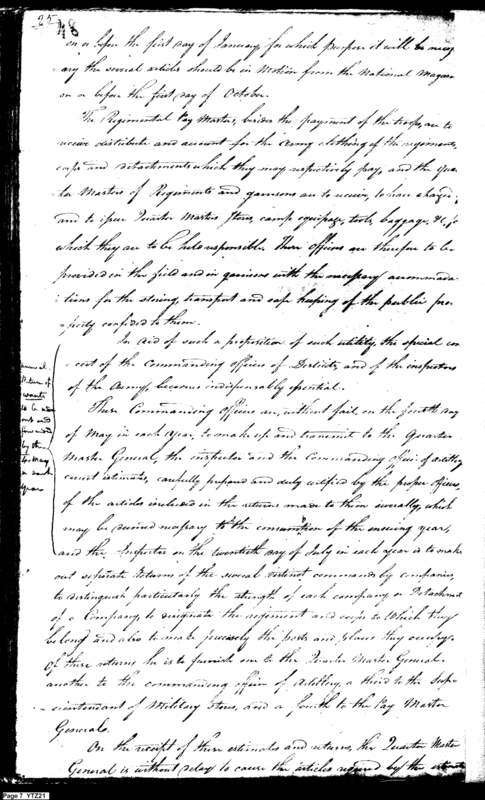 25
48
on or before the first day of January, for which purpose it will be necess
ary the several articles should be in Motion from the National Magazin
on or before the first day of October.
The Regimental Pay Masters, besides the payment of the troops, are to
receive distribute and account for the Army clothing of the regiments,
corps and detachments which they may respectively pay, and the Quar
ter Masters of Regiments and garrisons are to receive, to have charge,
and to issue Quarter Masters Stores, camp equipage, tools, baggage, &c, for
which they are to be held responsible. These officers are therefore to be
provided in the field and in garrisons with the necessary accommoda
tions for the storing, transport and safe keeping of the public pro
perty confided to them.
In aid of such a proposition of such utility, the special con
cert of the Commanding officers of Districts, and of the inspectors
of the Army, becomes indispensably essential.
These Commanding Officers are, without fail on the fourth day
of May in each year, to make up and transmit to the Quarter
Master General, the inspector and the Commanding officer of artillery
correct estimates, carefully prepared and duly certified by the proper officers,
of the articles included in the returns made to them severally, which
may be deemed necessary to the consumption of the ensuing year,
and the Inspector on the twentieth day of July in each year is to make
out separate Returns of the several distinct commands by companies,
to distinguish particularly the strength of each company or Detachment
of a Company, to designate the regiment and corps to which they
belong and also to make precisely the posts and places they occupy.
Of these returns he is to furnish one to the Quarter Master General
another to the commanding officer of Artillery, a third to the Supe
rintendant of Military Stores, and a fourth to the Pay Master
General.
On the receipt of these estimates and returns, the Quarter Master
General is without delay to cause the articles required by the estimate
annual
Return of
wants
to be made
out and
forwarded
by the
4 May
in each
year
Page 7 YTZ21